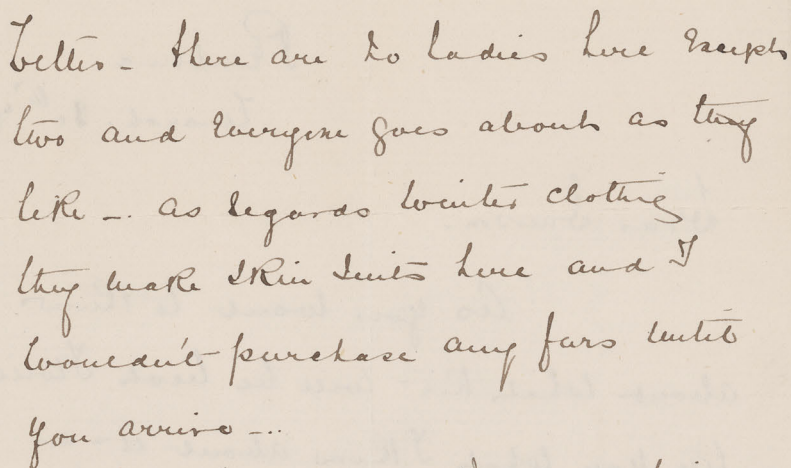 better – there are no ladies here except
two and everyone goes about as they
like –. as regards winter clothing
they make skin suits here and I
wouldn't purchase any furs until
you arrive – ..